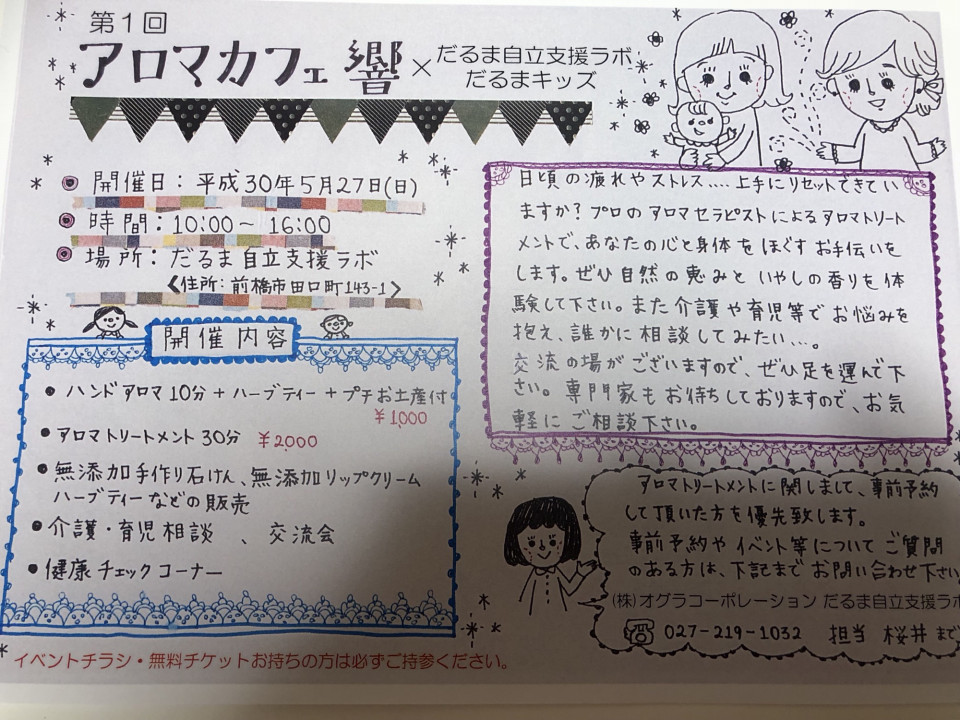 第1回
アロマカフェ 響×だるま自立支援ラボ
だるまキッズ
開催日：平成30年5月27日(日)
時間：10:00～16:00
場所：だるま自立支援ラボ
〈住所：前橋市田口町143-1〉
開催内容
・ハンドアロマ10分＋ハーブティー＋プチお土産付
¥1,000
・アロマトリートメント30分 ¥2000
・無添加手作り石けん、無添加リップクリーム
ハーブティーなどの販売
・介護・育児相談 、交流会
・健康チェックコーナー
日頃の疲れやストレス….上手にリセットできてい
ますか？プロのアロマセラピストによるアロマトリート
メントで、あなたの心と身体をほぐすお手伝いを
します。ぜひ自然の恵みといやしの香りを体
験して下さい。また介護や育児等でお悩みを
抱え、誰かに相談してみたい…。
交流の場がございますので、ぜひ足を運んで下
さい。専門家もお待ちしておりますので、お気
軽にご相談下さい。
アロマトリートメントに関しまして、事前予約
して頂いた方を優先致します。
事前予約やイベント等についてご質問
のある方は、下記までお問い合わせ下さい
(株)オグラコーポレーション だるま自立支援ラボ
027-219-1032 担当 桜井まで
イベントチラシ・無料チケットお持ちの方は必ずご持参ください。